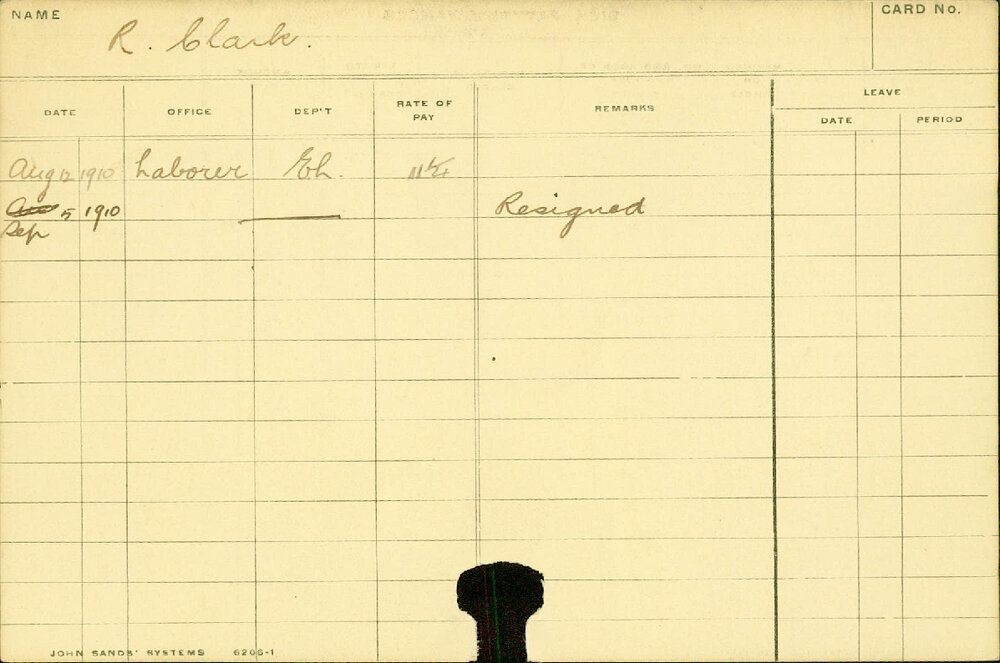 NAME
R. Clark.
CARD No.
DATE OFFICE DEP'T RATE OF PAY REMARKS LEAVE
DATE PERIOD
Aug 12 1910 Laborer
Sep 5 1910 Resigned
JOHN SANDS' SYSTEMS 6266-1